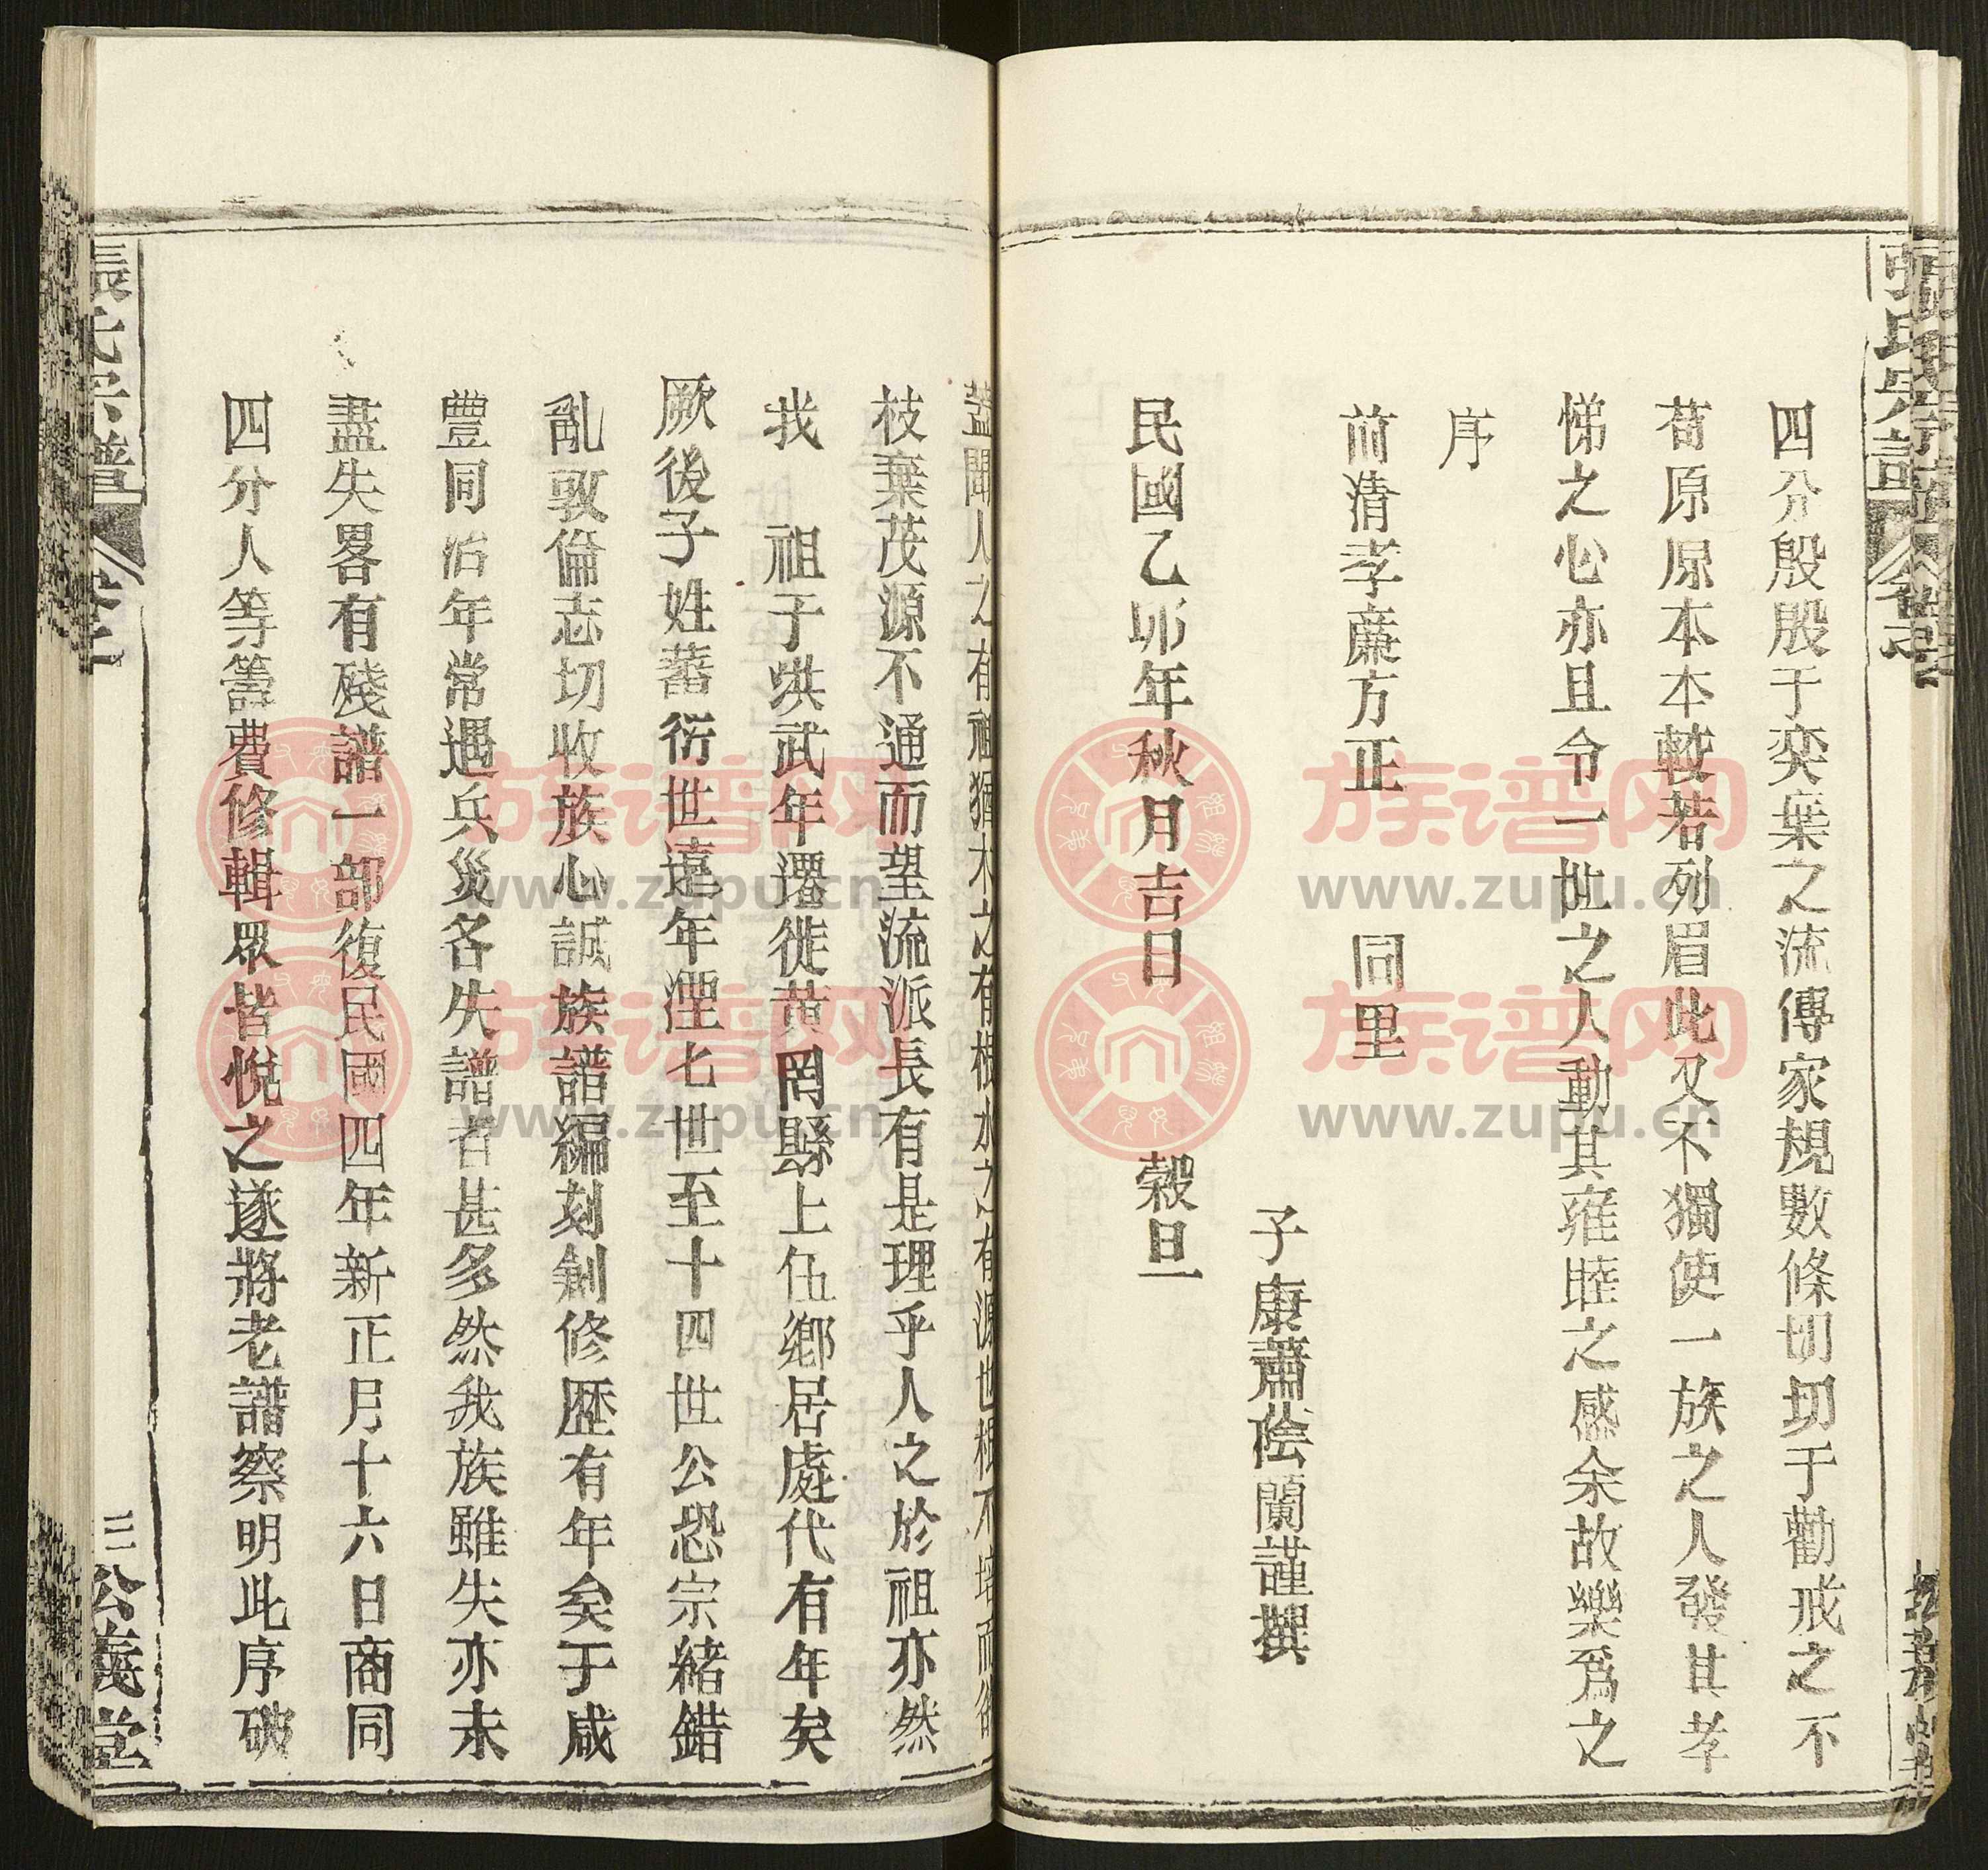 四分殷殷于奕葉之流傳家規數條切切于勸戒之不
苟原原本本較若列眉此又不獨使一族之人發其孝
悌之心亦且令一世之人動其雍睦之感余故樂爲之
序
前清孝廉方正 同里
子康蕭蔭蘭謹撰
民國乙卯年秋月吉日 穀旦
蓋聞人之有祖猶木之有根水之有源也根不培而欲
枝葉茂源不通而望流派長有是理乎人之於祖亦然
我 祖于洪武年遷徙黄罔縣上伍鄉居處代有年矣
厥後子姓蕃衍世遠年湮七世至十四世公恐宗緒錯
亂敦倫志切收族心誠族譜編刻創修歷有年矣于咸
豐同治年常遇兵災各失譜者甚多然我族雖失亦未
盡失畧有殘譜一部復民國四年新正月十六日商同
四分人等籌費修輯眾皆悅之遂將老譜察明此序破
張氏宗譜 卷首
三 公義堂
族谱网
www.zupu.cn
族谱网
www.zupu.cn
族谱网
www.zupu.cn
族谱网
www.zupu.cn